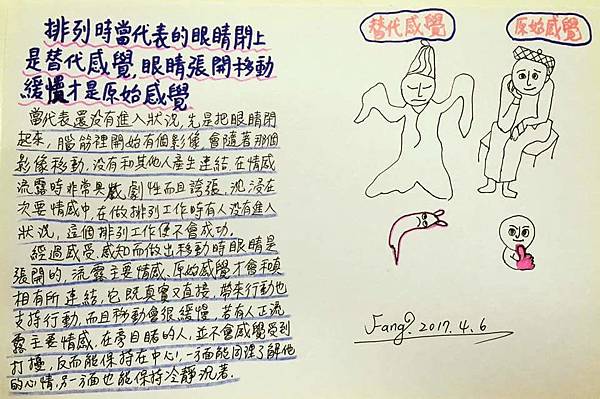 排列時當代表的眼睛閉上
是替代感覺,眼睛張開移動
緩慣才是原始感覺
當代表還没有進入狀況,先是把眼睛閉
起來,腦筋裡開始有個影像,會隨著那個
影像移動,没有和其他人產生連結.在情感
流露時非常具戲劇性而且誇張,沉浸在
次要情感中,在做排列工作時有人没有進入
狀況,這個排列工作便不會成功。
經過感受.感知而做出移動時眼睛是
張開的,流露主要情感、原始感覺才會和真
相有所連結,它既真實又直接,帶來行動也
支持行動,而且移動會很緩慢,若有人正流
露主要情感,在旁目睹的人,並不會感覺受到
打擾,反而能保持在中心!,一方面能同理了解他
的心情,另一方面也能保持冷靜沉著.
替代感覺
原始感覺
Fang. 2017.4.6